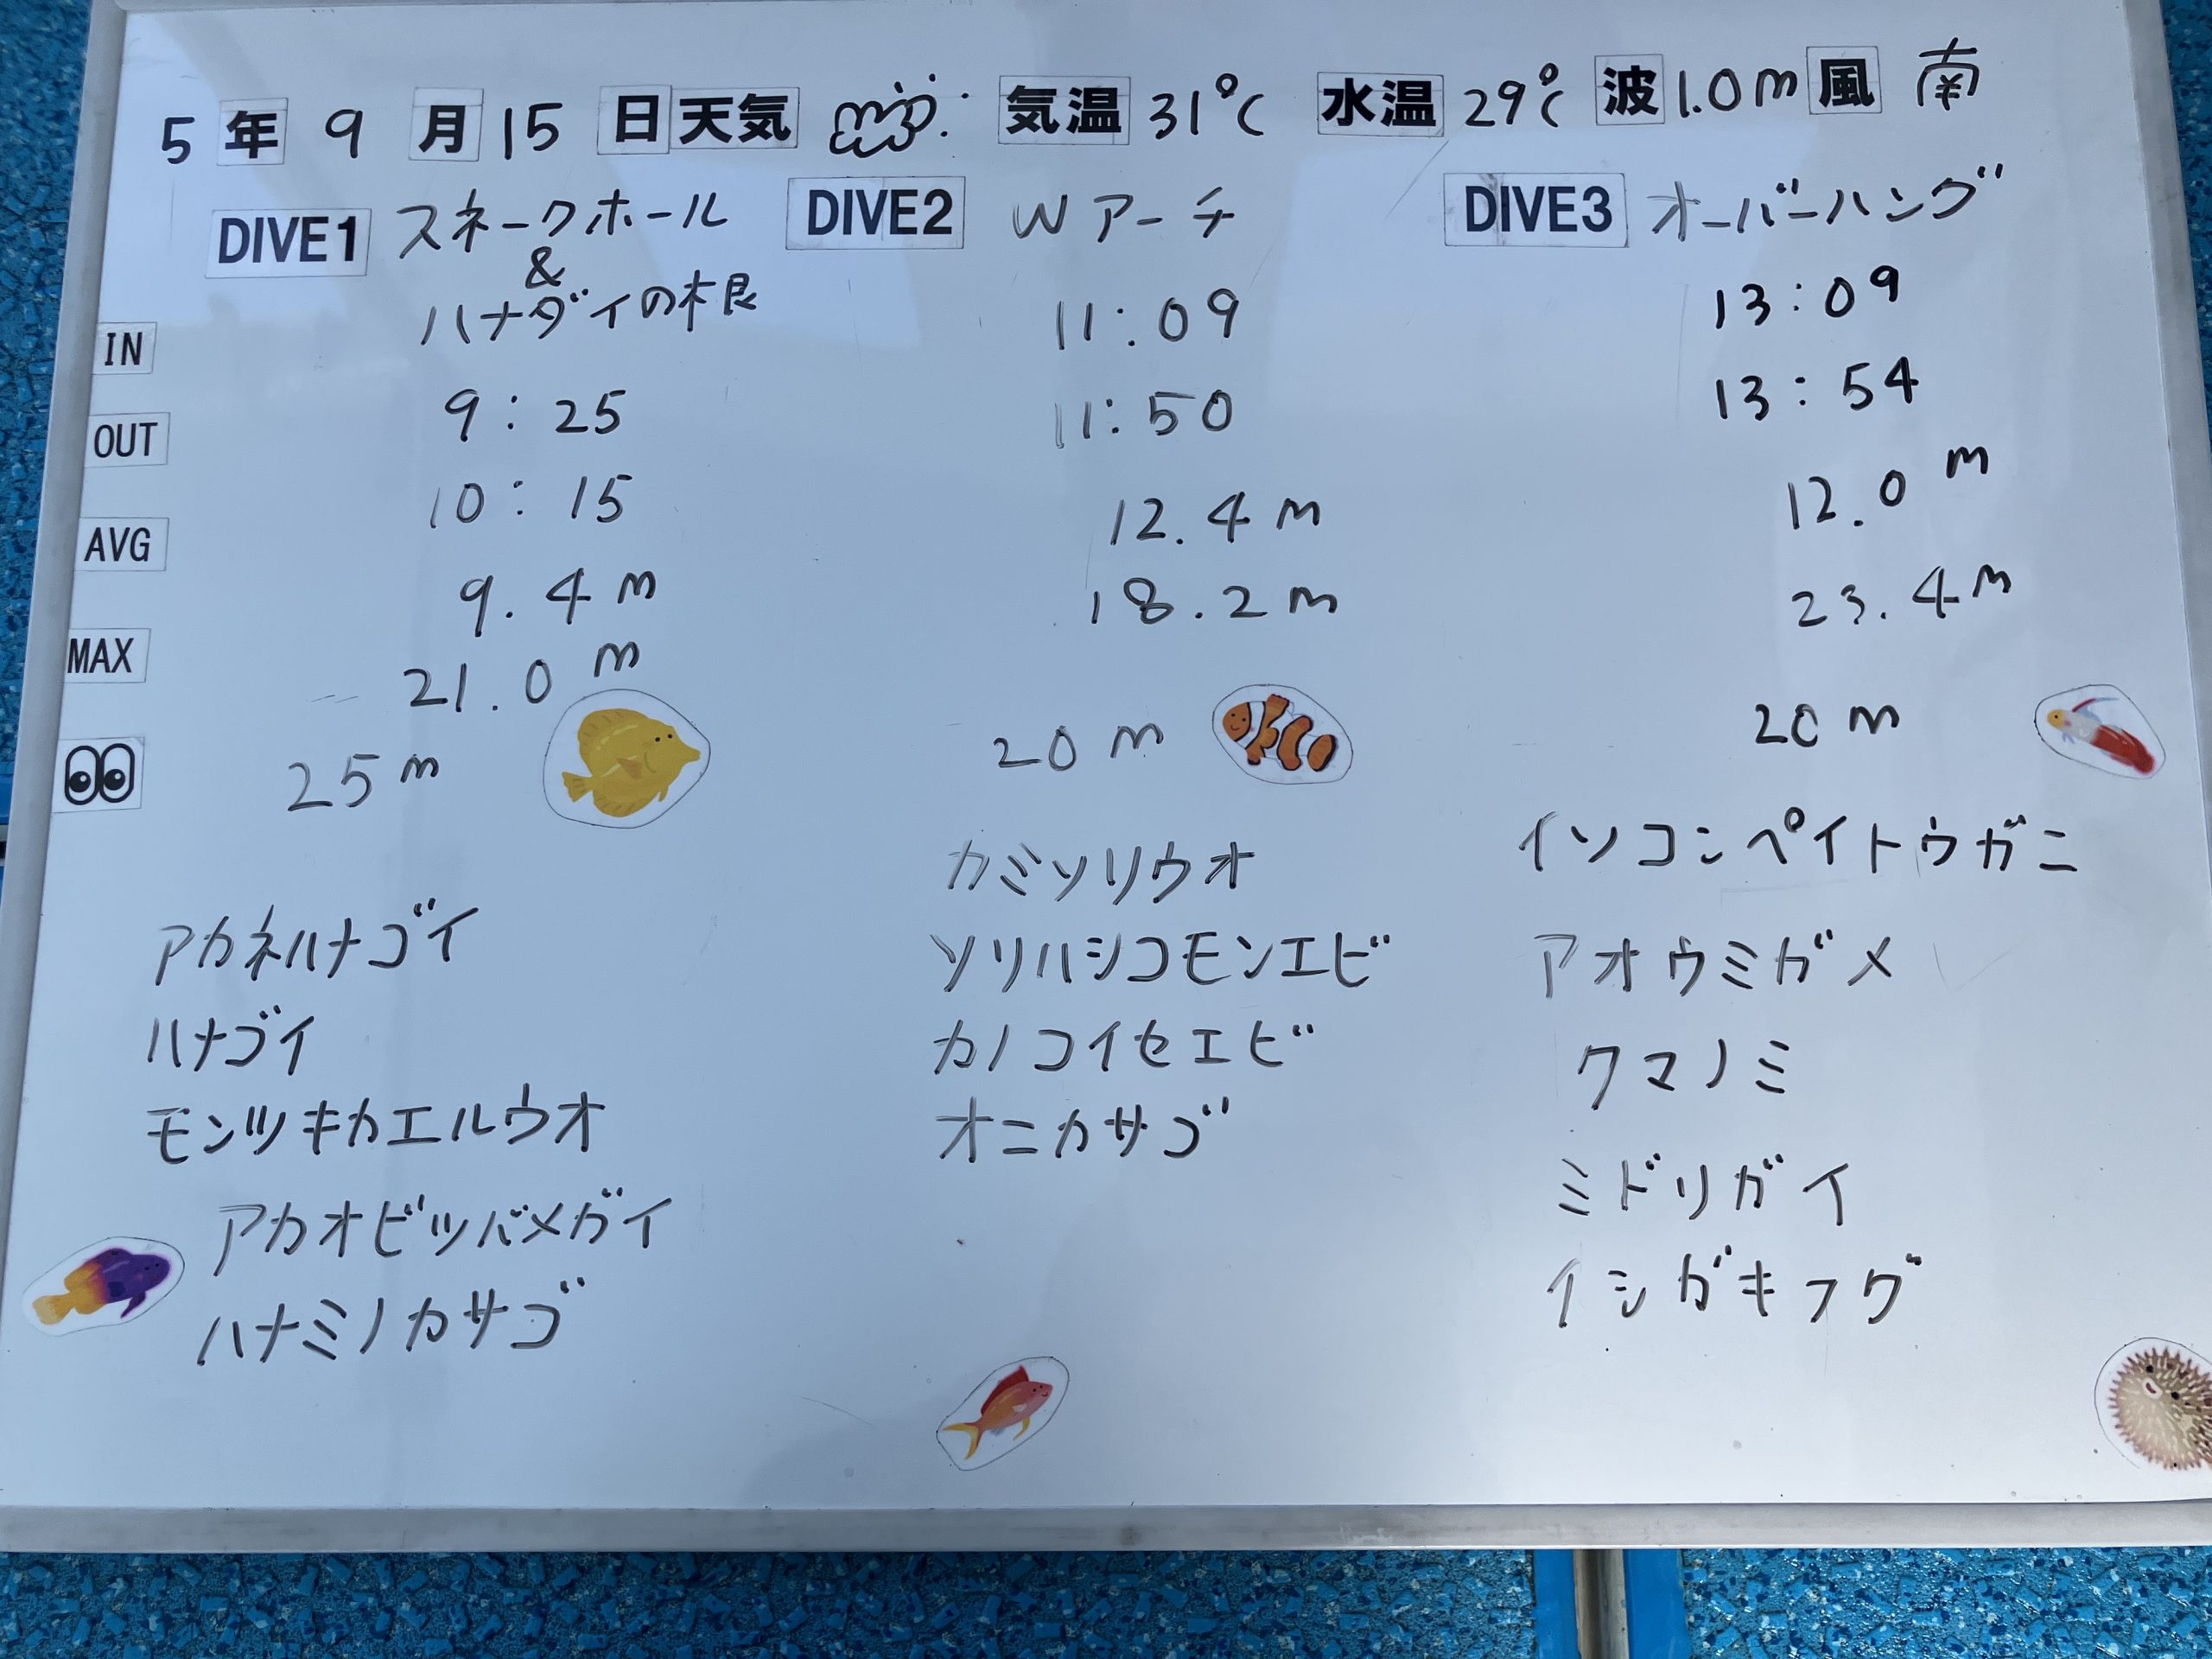 5 年 9 月 15 日 天気 気温 31℃ 水温 29℃ 波 1.0m 風 南
DIVE1 スネークホール
&
ハナダイの根
DIVE2 Wアーチ
DIVE3 オーバーハング
IN
OUT
AVG
MAX
9:25
10:15
9.4m
21.0m
25m
アカネハナゴイ
ハナゴイ
モンツキカエルウオ
アカオビツバメガイ
ハナミノカサゴ
11:09
11:50
12.4m
18.2m
20m
カミソリウオ
ソリハシコモンエビ
カノコイセエビ
オニカサゴ
13:09
13:54
12.0m
23.4m
20m
イソコンペイトウガニ
アオウミガメ
クマノミ
ミドリガイ
イシガキフグ